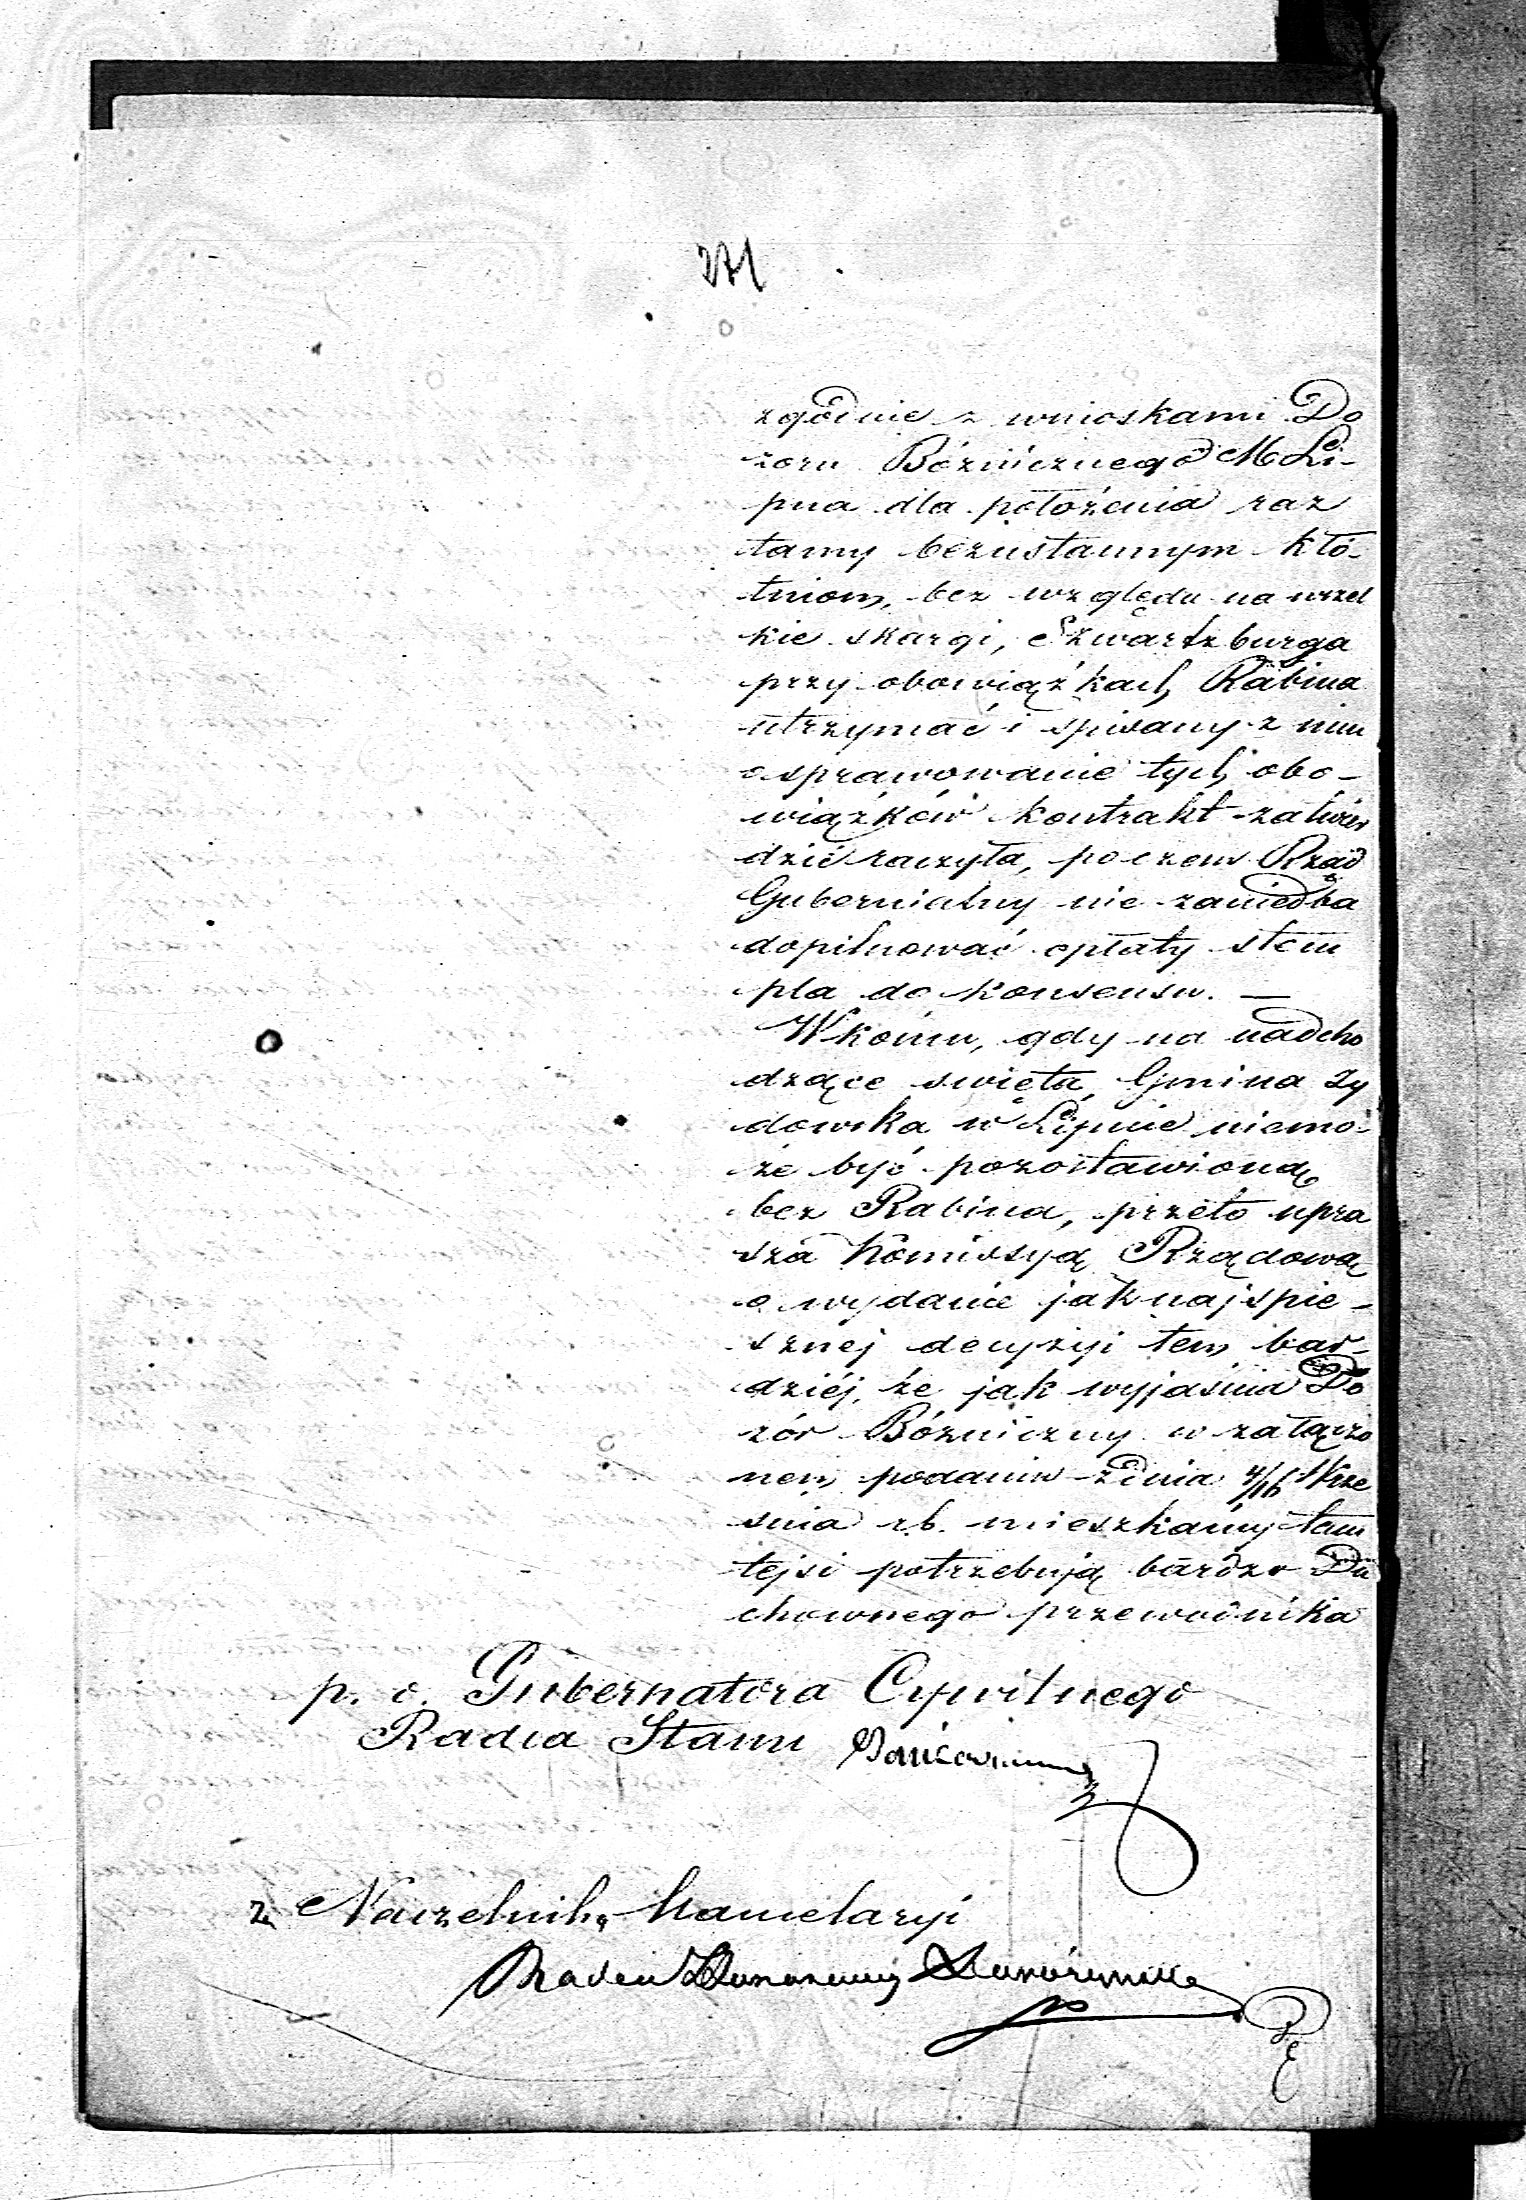 271
zgodnie z wnioskami Do
zoru Bóżniczego M Li-
pna dla położenia raz
tamy bezustannym kłó-
tniom, bez względu na wszel
kie skargi, Szwartzburga
przy obowiązkach Rabina
utrzymać i spisany z nim
o sprawowanie tych obo-
wiązków kontrakt zatwier
dzić raczyła, poczem Rząd
Gubernialny nie zaniedba
dopilnować opłaty stem
pla do konsensu. —
W końcu, gdy na nadcho
dzące święta, Gmina Ży
dowska w Lipnie niemo-
że być pozostawioną
bez Rabina, przeto upra
sza Kommissyą Rządową
o wydanie jak najspie-
sznej decyzyi tem bar-
dziéj, że jak wyjaśnia Do
zór Bóżniczny w załączo
nem podaniu z dnia 4/16 Wrze
śnia r.b. mieszkańcy tam
tejsi potrzebują bardzo Du
chownego przewodnika
p. o. Gubernatora Cywilnego
Radca Stanu
za Naczelnika Kancelaryi
Radca Honorowy